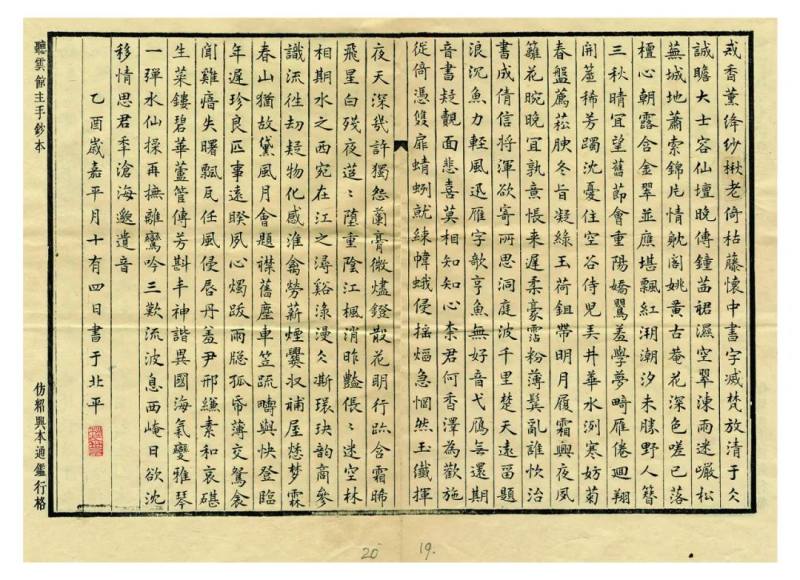 戎香薰絳紗楸老倚枯藤懷中書字滅梵放清于久
誠瞻大士容仙壇晚傳鐘苗裙濕空翠湅雨迷巖松
蕪城地蕭索錦片情躭閣姚黄古菴花深色嗟已落
檀心朝露含金翠並應堪飄紅溯潮汐未勝野人簪
三秋晴宜望舊節會重陽嬌鸎羞學夢畸雁倦迴翔
開簾稀芳躅沈憂住空谷侍兒弄井華水冽寒妨菊
春盤薦菘腴冬旨凝綠玉荷鉏帶明月履霜興夜夙
籬花晼晚宜孰意悵来遲柔豪霑粉薄鬓亂誰忺治
書成倩信将渾欲寄所思洞庭波千里楚天遠畱題
浪沉魚力輕風迅雁字欹亨魚無好音弋鴈無還期
音書疑覿面悲喜莫相知知心柰君何香澤為歡施
從倚憑雙扉蜻蛚就練幃蛾侵搖熖急惘然玉儀揮
夜天深幾許獨怨蘭膏微燼鐙散花明行跡含霜晞
飛星白殘夜迢〻蔭重陰江楓消昨豔倀〻迷空林
相期水之西宛在江之潯谿淥漫久澌環玦韵商參
識流徃劫疑物化感淮禽勞薪煙爨収補屋愁夢霖
春山猶故黛風月會題襟舊塵車笠疏疇與快登臨
年遲珍良匹事遠睽夙心燭跋雨隠孤帝薄交鴛衾
聞雞瘖失曙飄瓦任風侵唇丹羞尹邢縑素和哀碪
生菜鏤碧華蘆管傳芳斟丰神諧異國海氣變雅琴
一彈水仙操再撫離鸞吟三歎流波息西崦日欲沈
移情思君季滄海邈遺音
乙酉歳嘉平月十有四日書于北平
聽雲館主手鈔本
仿紹興本通鑑行格
20
19.